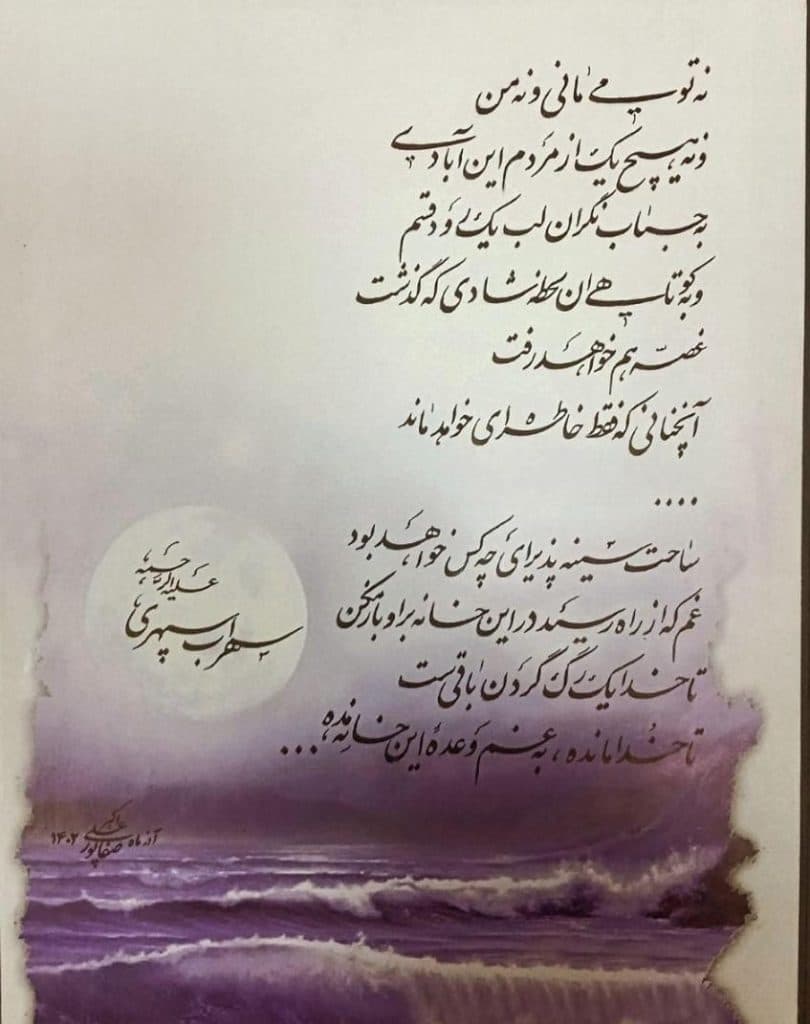 نه تو می مانی و نه من
و نه هیچ یک از مردم این آبادی
به حباب نگران لب یک رود قسم
و به کوتاهی آن لحظه شادی که گذشت
غصه هم خواهد رفت
آنچنانی که فقط خاطره ای خواهد ماند
....
ساحت سینه پذیرای چه کس خواهد بود
غم که از راه رسید در این خانه بر او باز مکن
تا خدا یک رگ گردن باقی ست
تا خدا مانده، به غم وعده این خانه مده...
سهراب سپهری
علیه الرحمه
علی اکبر صفاپور
آذر ماه ۱۴۰۲